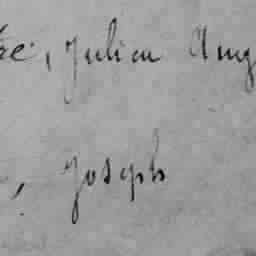 ée, Julien Aug
, Joseph